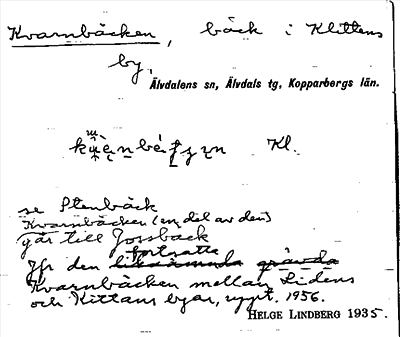 Kvarnbäcken, bäck i Klittens
by,
Älvdalens sn, Älvdals tg, Kopparbergs län.
Kl.
se Stenbäck
Kvarnbäcken (en del av den)
går till Jossbäck
fortsatta
Jfr den likanämnda grävda
Kvarnbäcken mellan Lidens
och Kittans byar, uppt. 1956.
HELGE LINDBERG 1935.